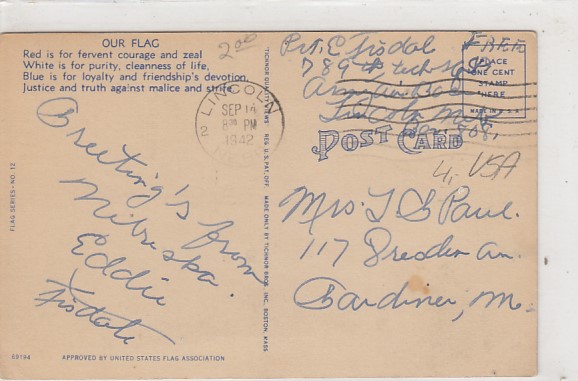 OUR FLAG
Red is for fervent courage and zeal
White is for purity, cleanness of life,
Blue is for loyalty and friendship's devotion,
Justice and truth against malice and strife
2.00
LINCOLN
SEP 14
8 30 PM
1942
2
Greeting's from
Nibraska.
Eddie
FLAG SERIES - NO. 12
68194
APPROVED BY UNITED STATES FLAG ASSOCIATION
TICHNOR QUALITY VIEWS REG. U.S. PAT. OFF. MADE ONLY BY TICHNOR BROS. INC., BOSTON, MASS.
Pvt. E Fisdal
789th tech
Lincoln Neb
FREE
PLACE
ONE CENT
STAMP
HERE
MADE IN U.S.A.
POST CARD
4, USA
Mrs. T S Paul.
117 Dresden Av.
Gardiner, Me.